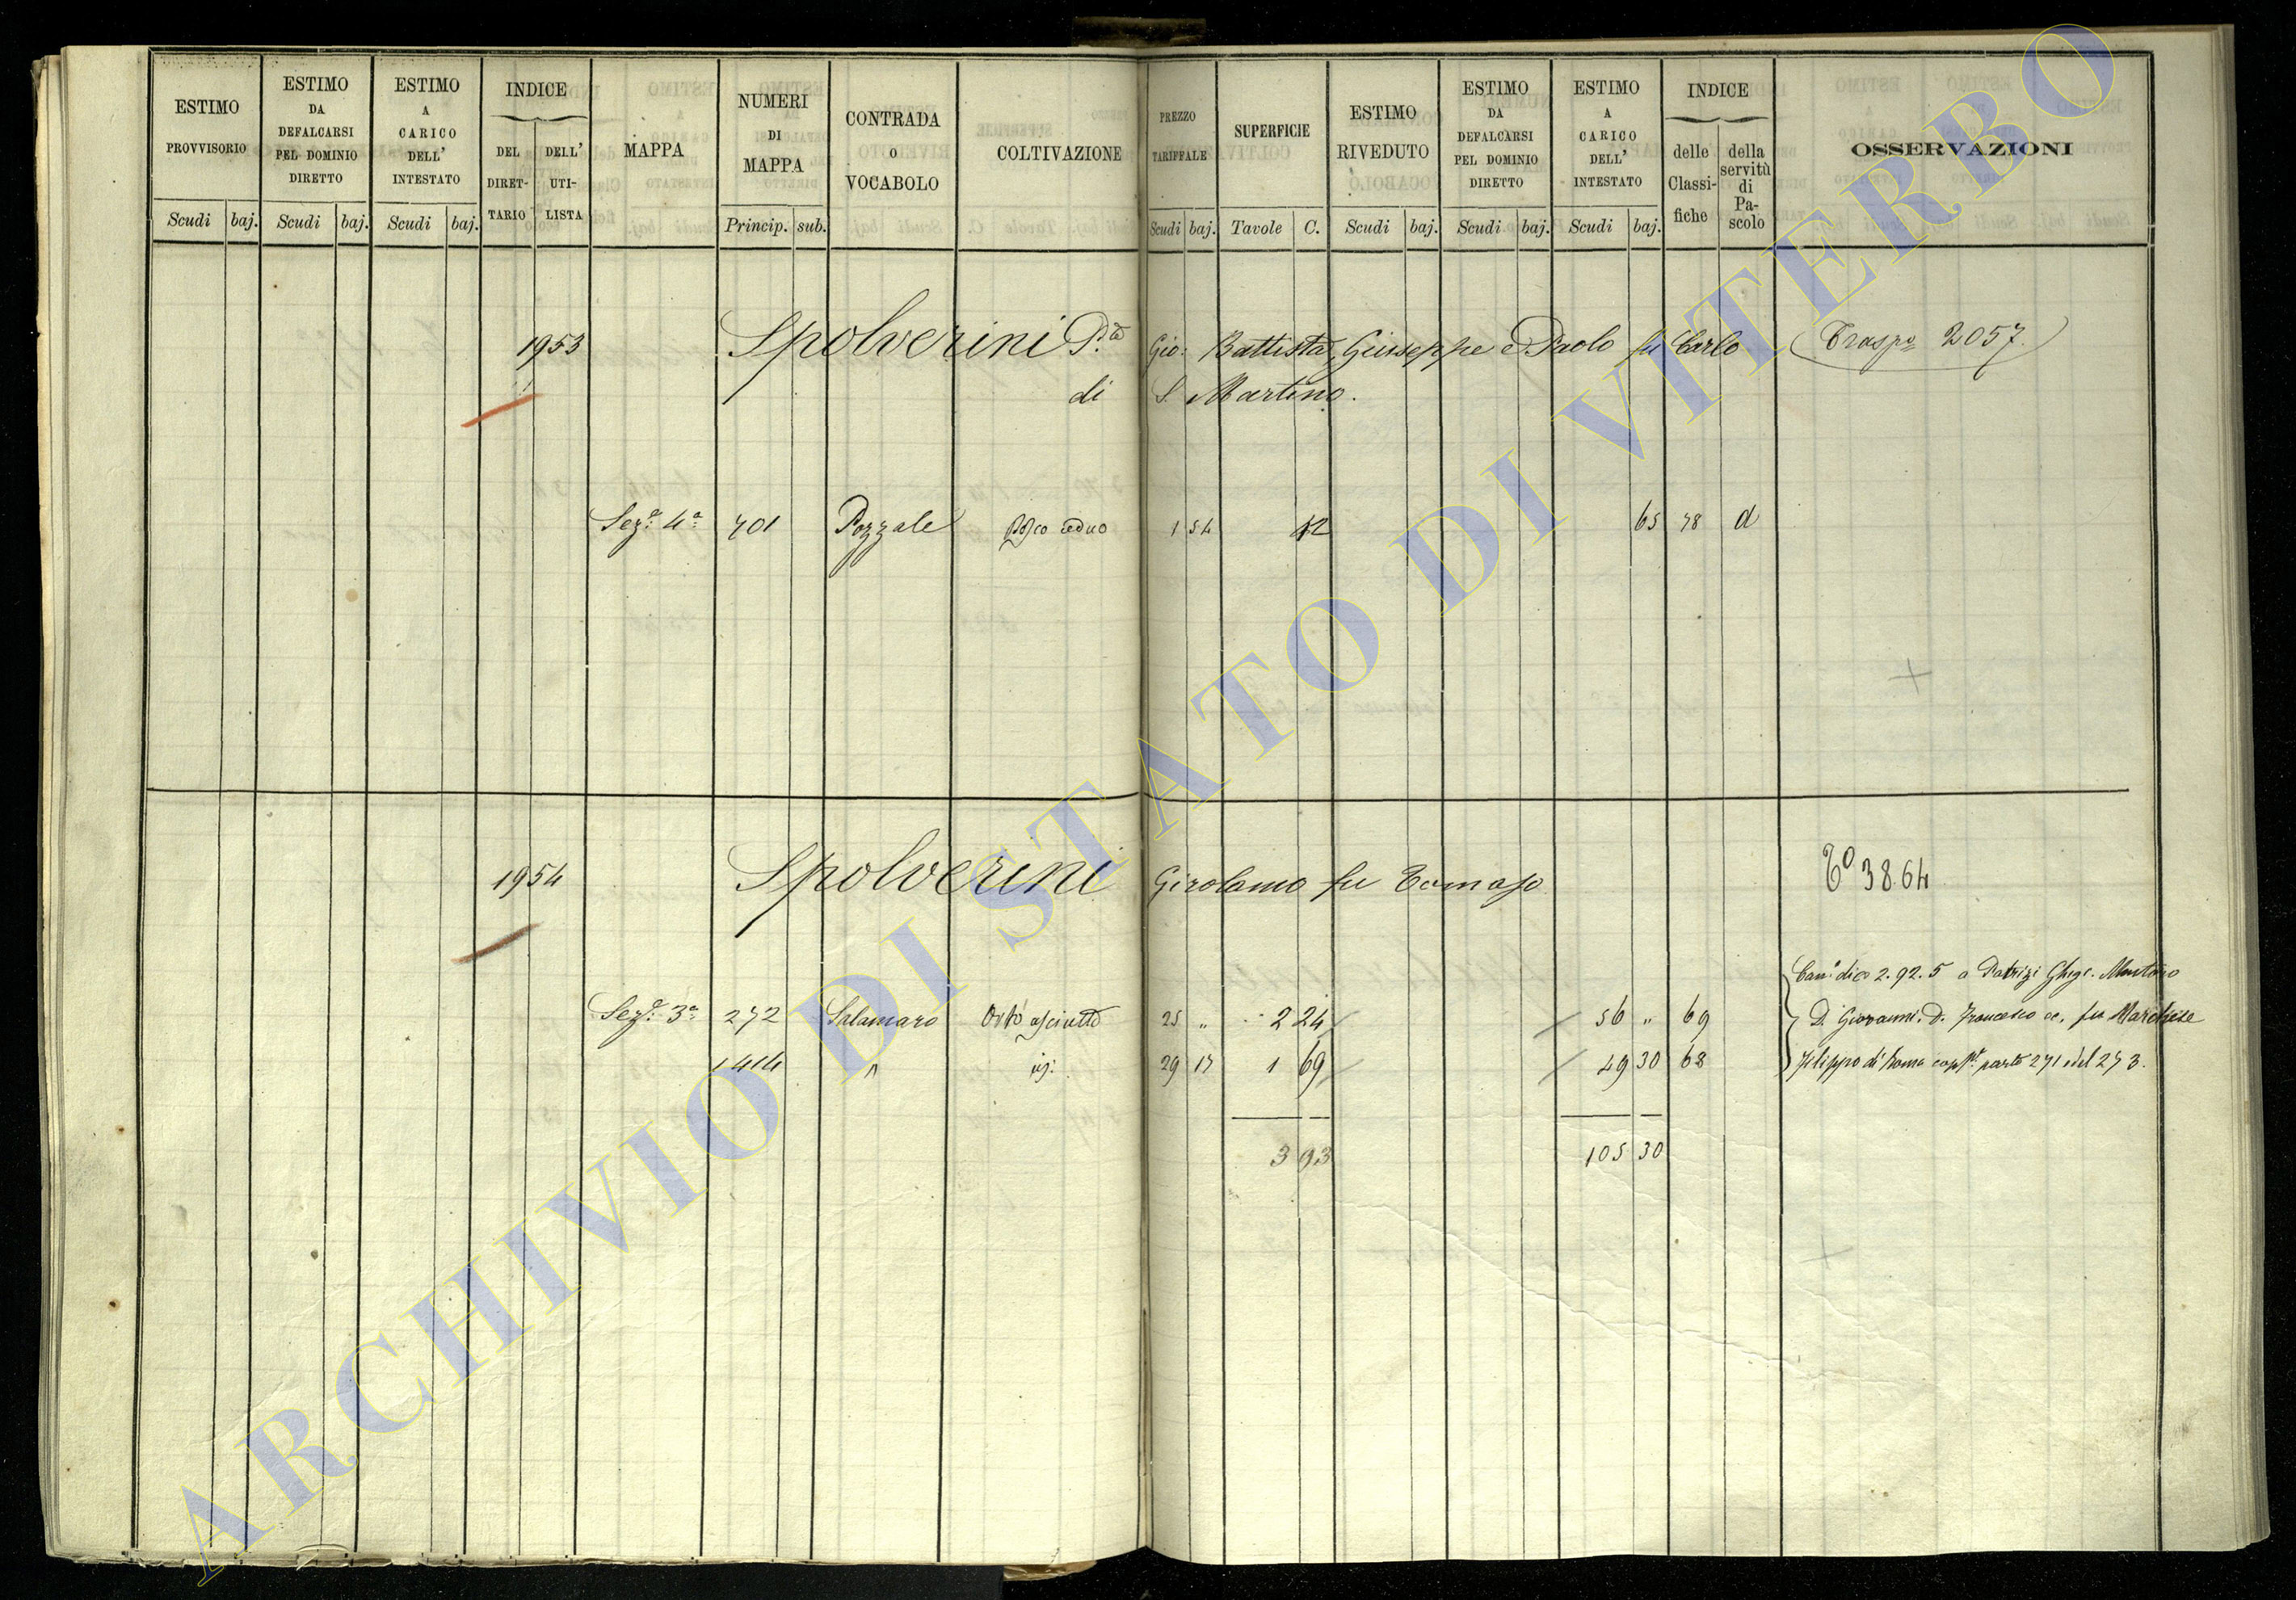 ESTIMO PROVVISORIO
ESTIMO DA DEFALCARSI PEL DOMINIO DIRETTO
ESTIMO A CARICO DELL' INTESTATO
INDICE
DEL DIRET-TARIO
DELL' UTI-LISTA
MAPPA
NUMERI DI MAPPA
CONTRADA O VOCABOLO
COLTIVAZIONE
PREZZO TARIFFALE
SUPERFICIE
ESTIMO RIVEDUTO
ESTIMO DA DEFALCARSI PEL DOMINIO DIRETTO
ESTIMO A CARICO DELL' INTESTATO
INDICE
delle Classi-fiche
della servitù di Pa-scolo
OSSERVAZIONI
Scudi baj. Scudi baj. Scudi baj. Princip. sub. Scudi baj. Tavole C. Scudi baj. Scudi baj. Scudi baj.
1953 Spolverini Gio: Battista, Giuseppe e Paolo fu Carlo (Traspo 2057.)
di S. Martino.
Sez.e 4a 701 Pozzale Bosco ceduo 1 54 42 65 78 d
1954 Spolverini Girolamo fu Tomaso To 3864
Can.e di sc 2.92.5 a Patrizi Montoro
Sez.e 3a 272 Salamaro Orto asciutto 25 " 2 24 56 " 69 D. Giovanni, D. Francesco ec. fu Marchese
1414 " id: 29 17 1 69 49 30 68 Filippo di Roma parte 271 e del 273.
3 93 105 30
ARCHIVIO DI STATO DI VITERBO